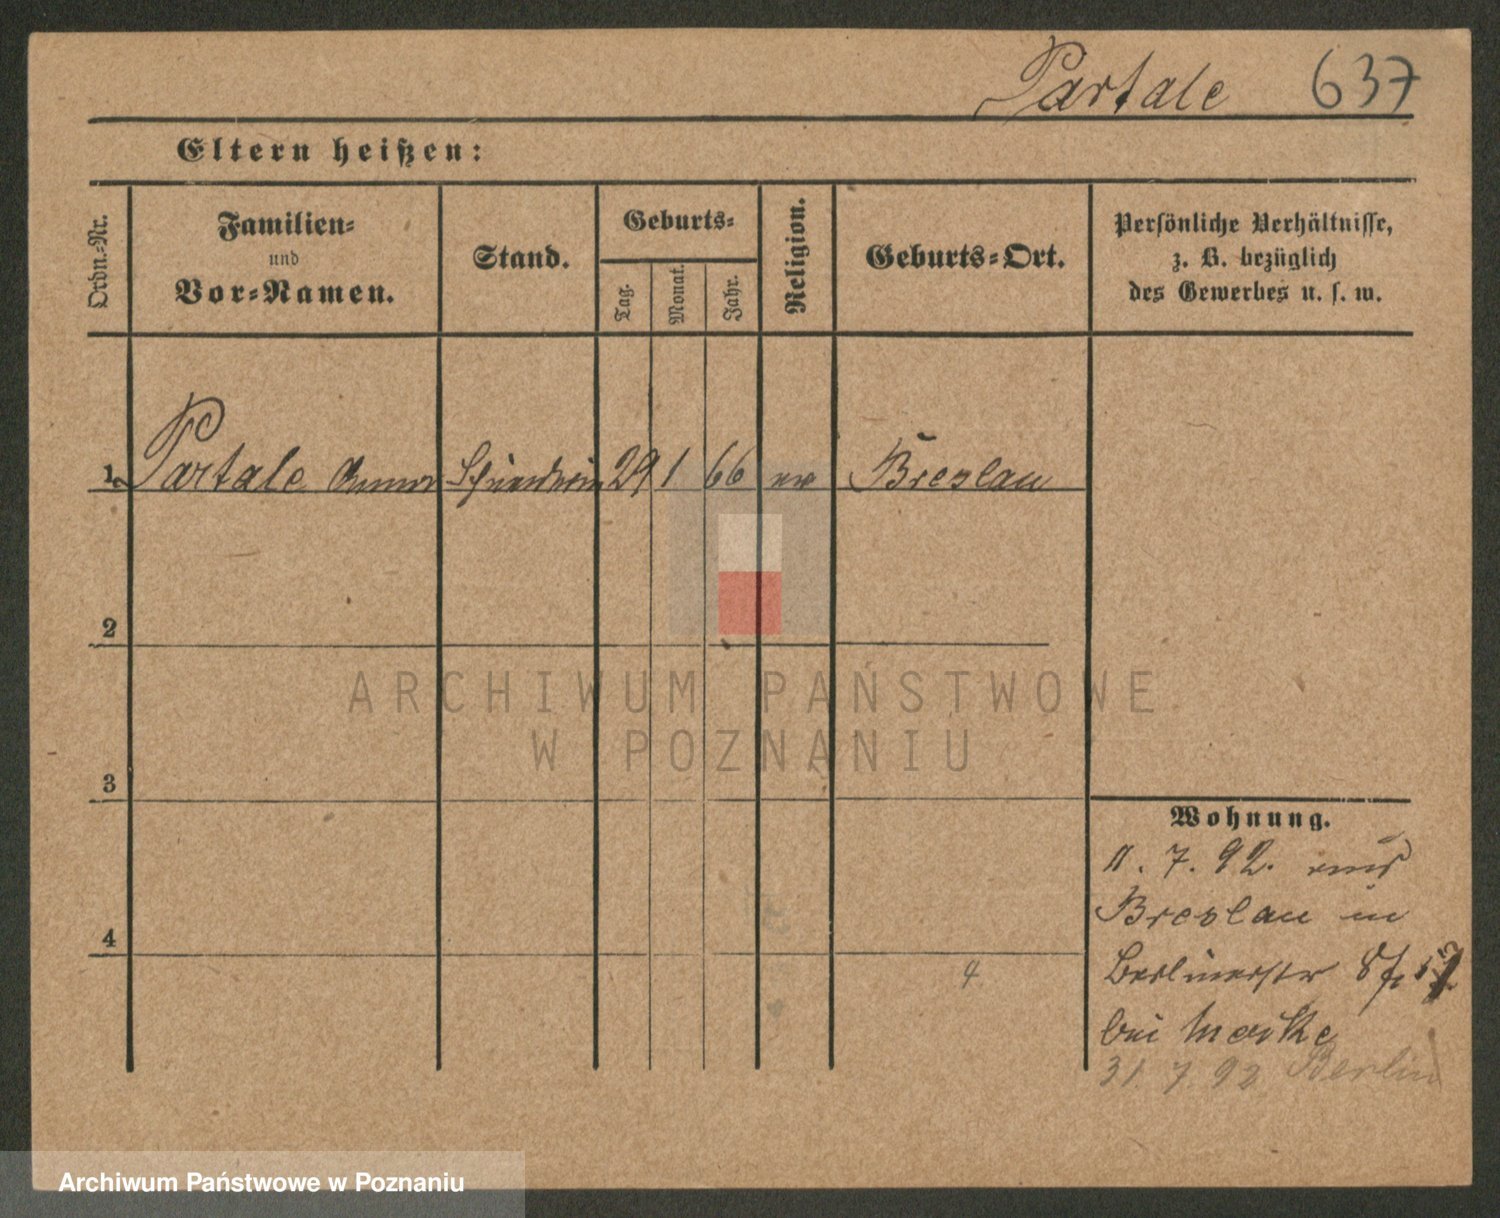 Partale 637
Eltern heißen:
Ordn.-Nr.
Familien- und Vor-Namen.
Stand.
Geburts-
Tag.
Monat.
Jahr.
Religion.
Geburts-Ort.
Persönliche Verhältnisse,
z. B. bezüglich
des Gewerbes u. s. w.
1. Partale Anna 29 1 66 ev Breslau
2
3
4
4
Wohnung.
11. 7. 92. aus
Breslau in
Berlinerstr
bei
31 7 92 Berlin
ARCHIWUM PAŃSTWOWE
W POZNANIU
Archiwum Państwowe w Poznaniu